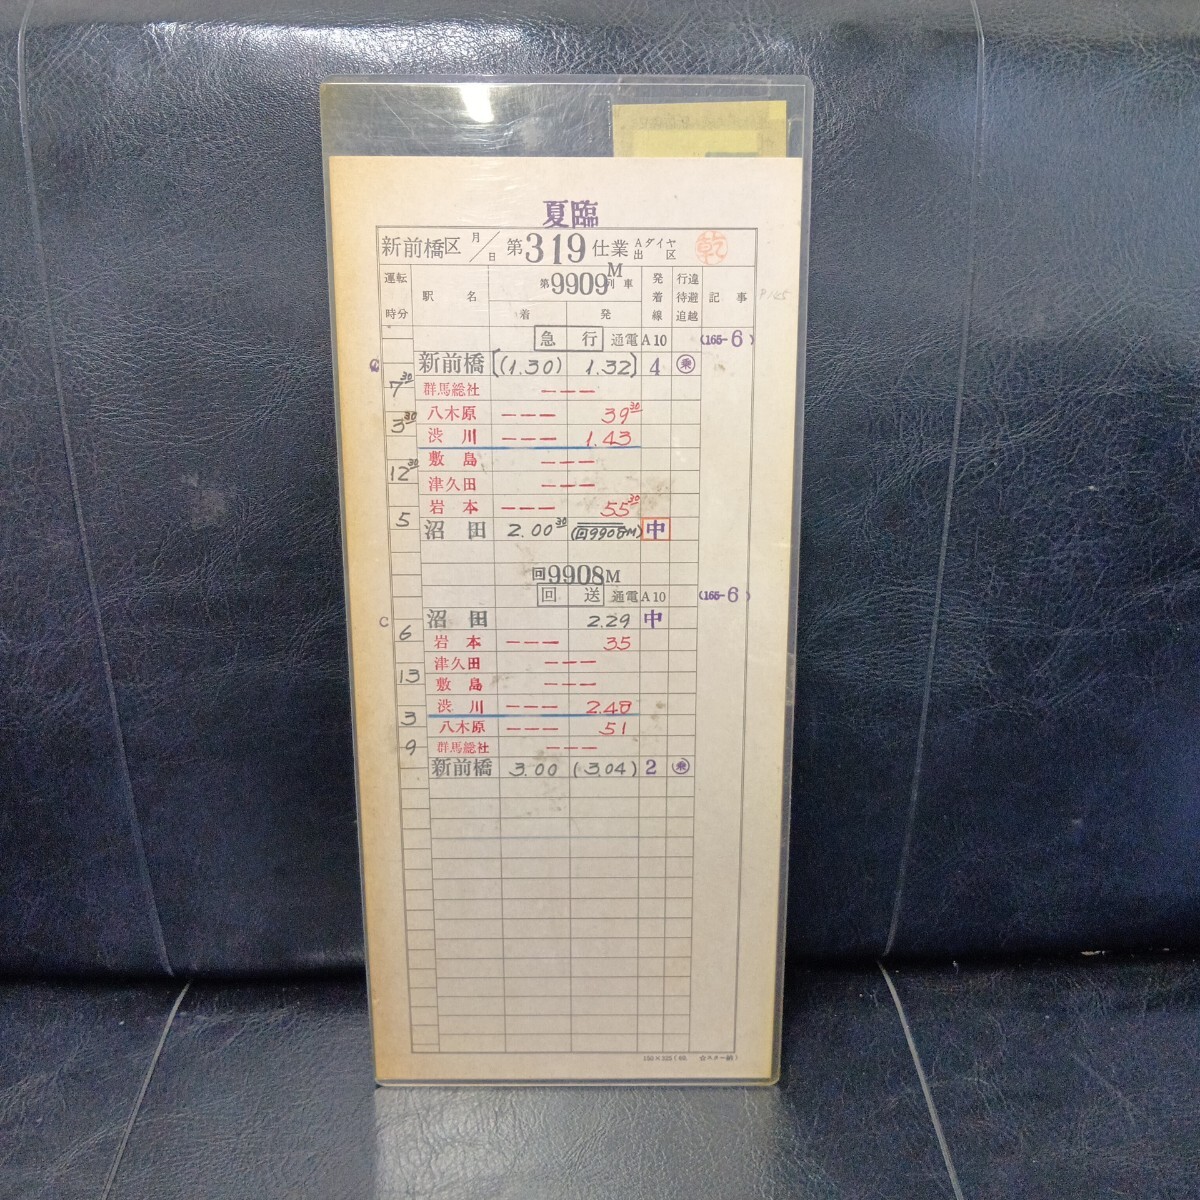 夏臨
新前橋区 月/日 第319仕業 Aダイヤ出区 乾
運転時分 駅名 第9909M列車 着 発 発着線 行違待避追越 記事
急行 通電A10 (165-6)
新前橋 (1.30) 1.32 4 乗
7 30 群馬総社 ---
八木原 --- 39 30
3 30 渋川 --- 1.43
敷島 ---
12 30 津久田 ---
岩本 --- 55 30
5 沼田 2.00 30 (回9908M) 中
回9908M
回送 通電A10 (165-6)
C 沼田 2.29 中
6 岩本 --- 35
津久田 ---
13 敷島 ---
渋川 --- 2.48
3 八木原 --- 51
9 群馬総社 ---
新前橋 3.00 (3.04) 2 乗